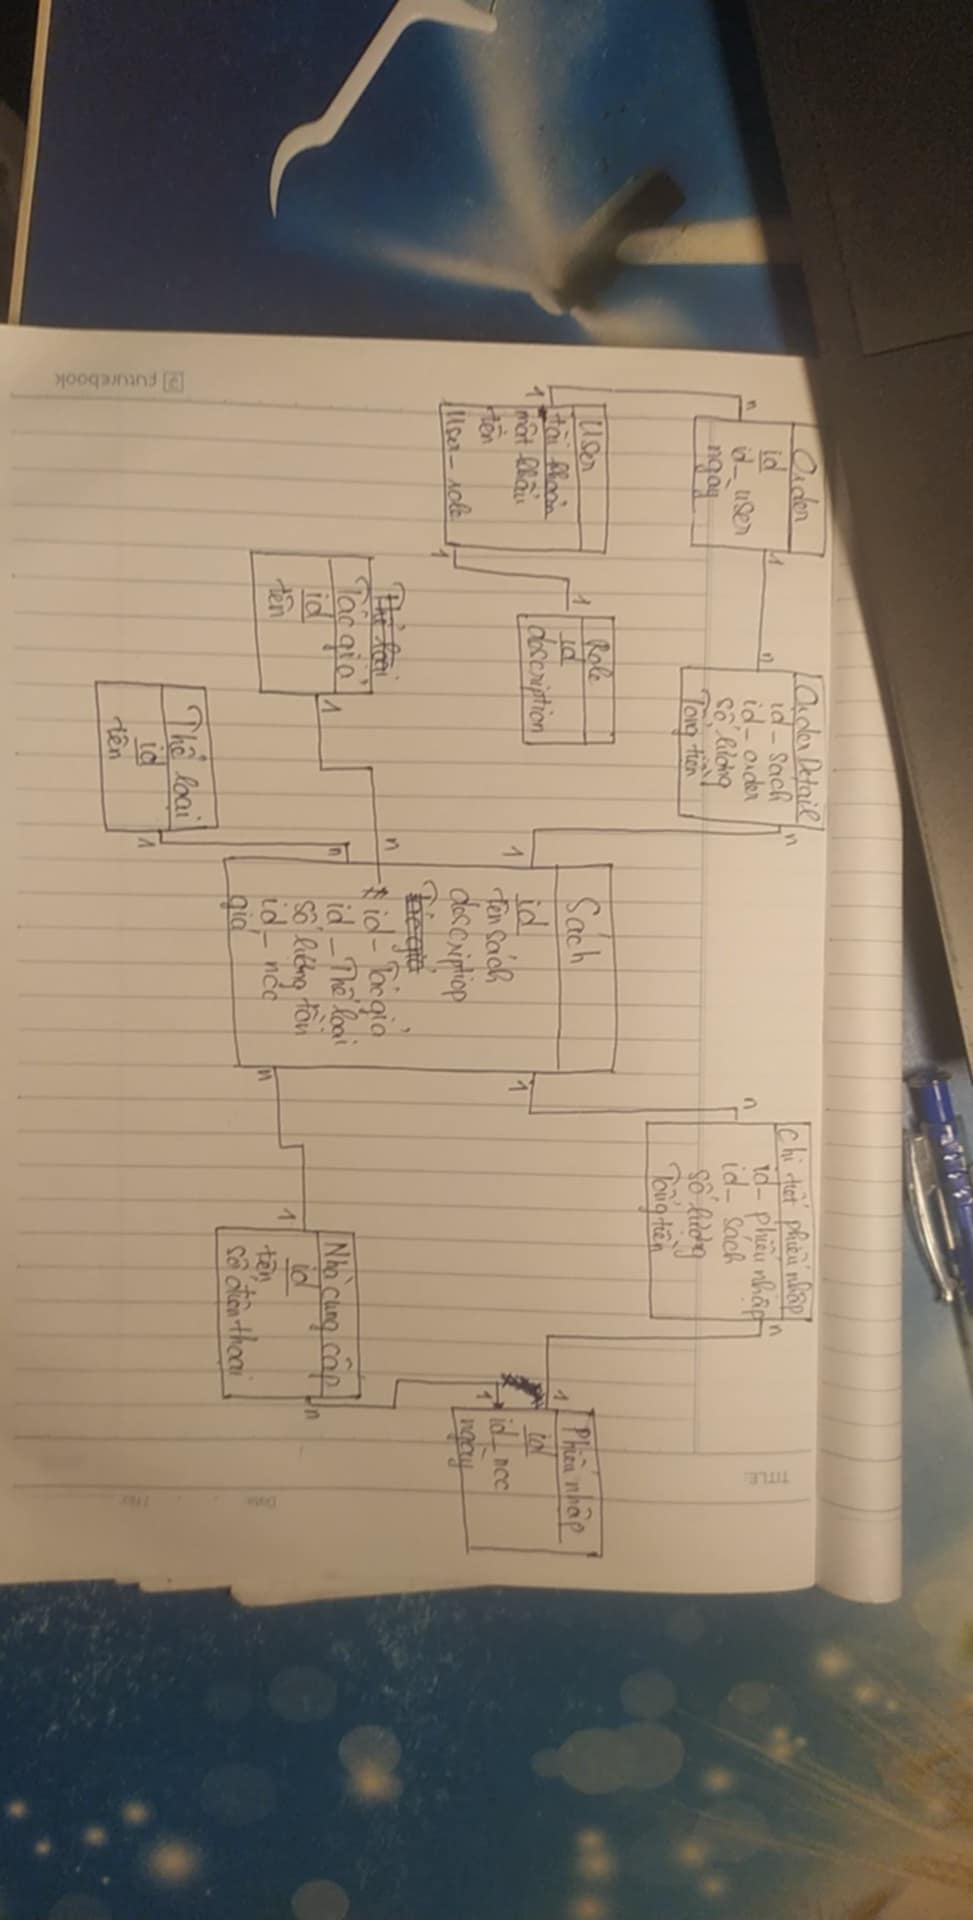 Order
id
id_user
ngày
1
n
n
OrderDetail
id_sach
id_order
số lượng
Tổng tiền
n
Chi tiết phiếu nhập
id_phiếu nhập
id_sách
số lượng
Tổng tiền
n
n
TITLE:
User
tài khoản
mật khẩu
tên
User_role
1
1
Role
id
description
1
Sách
id
tên sách
description
Tác giả
id_Tác giả
id_Thể loại
số lượng tồn
id_ncc
giá
1
1
n
n
n
Phiếu nhập
id
id_ncc
ngày
1
1
Thể loại
Tác giả
id
tên
1
Nhà cung cấp
id
tên
số điện thoại
1
n
Thể loại
id
tên
1
Date
FUTUREBOOK